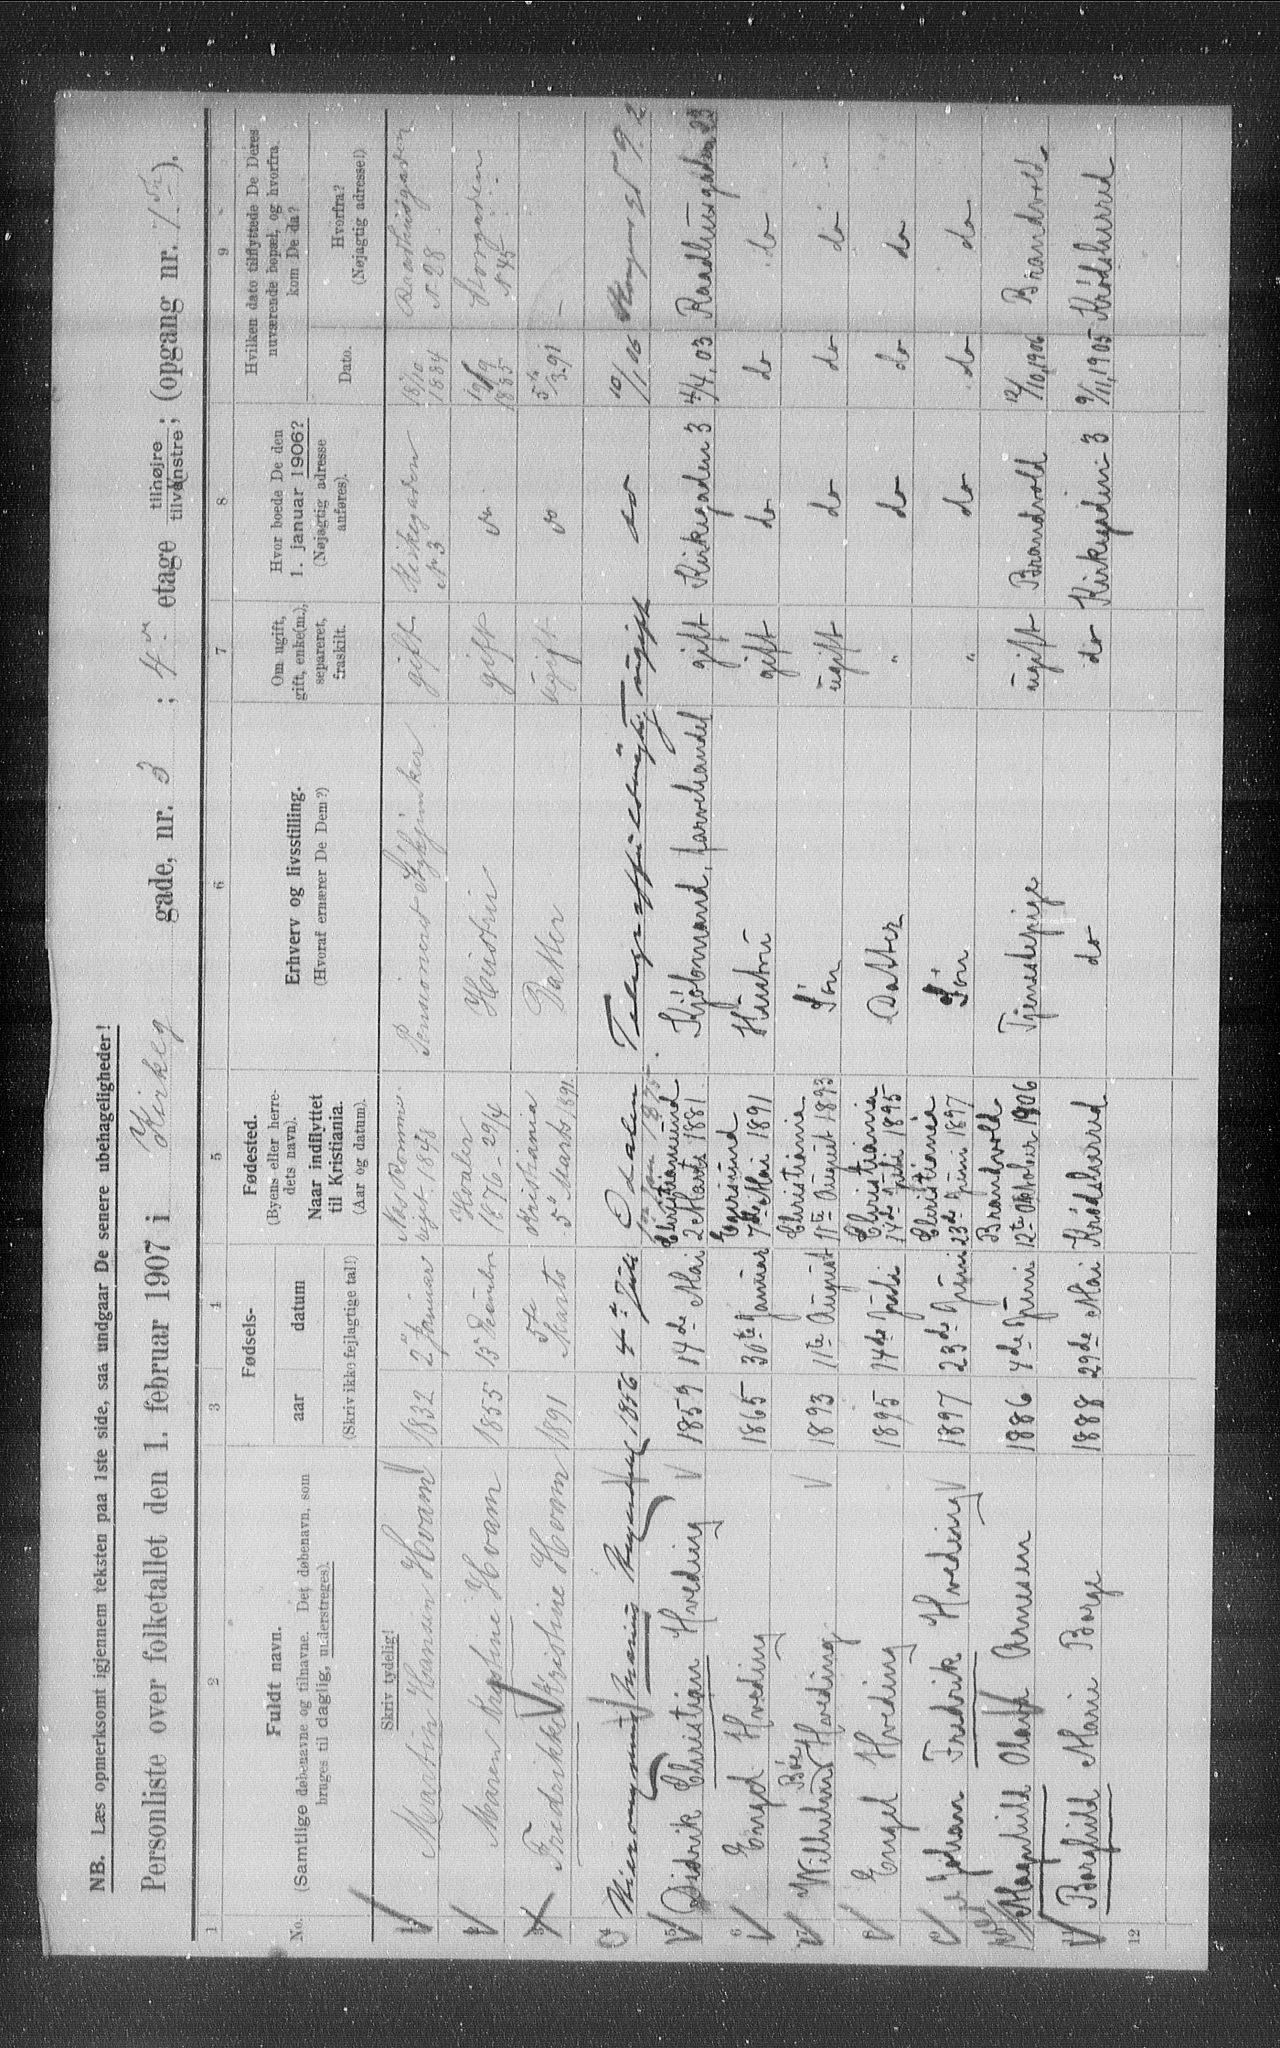 NB. Læs opmerksomt igjennem teksten paa 1ste side, saa undgaar De senere ubehageligheder!
Personliste over folketallet den 1. februar 1907 i Kirkeg gade, nr. 3 ; 4 etage tilhøjre tilvenstre; (opgang nr. ).
1 2 3 4 5 6 7 8 9
No.
Fuldt navn.
(Samtlige døbenavne og tilnavne. Det døbenavn, som
bruges til daglig, understreges).
Fødsels-
aar datum
(Skriv ikke fejlagtige tal!)
Fødested.
(Byens eller herre-
dets navn).
Naar indflyttet
til Kristiania.
(Aar og datum).
Erhverv og livsstilling.
(Hvoraf ernærer De Dem?)
Om ugift,
gift, enke(m.),
separeret,
fraskilt.
Hvor boede De den
1. januar 1906?
(Nøjagtig adresse
anføres).
Hvilken dato tilflyttede De Deres
nuværende bopæl, og hvorfra
kom De da?
Dato.
Hvorfra?
(Nøjagtig adresse!)
Skriv tydelig!
Martin Hansen Hvam 1832 2 Januar 1848 Pensioneret gift Kirkegaden N 3 18/10 1884 N 28
Maren Kristine Hvam 1855 13 Hvaler 1876 - 29/4 Hustru gift do 19/9 1885 Storgaden N 45
Fredrikke Kristine Hvam 1891 5te Marts Kristiania 5 Marts 1891 Datter ugift do 5te/3-91 –
4 Hieronymus Marius 1856 4de Juli Odalen 1875 ugift do 10/1, 06
5 Didrik Christian Hveding 1859 14de Mai Christiansund 2 Marts 1881 Kjøbmand, farvehandel gift Kirkegaden 3 4/4, 03 Raadhusgaden 23
6 Engel Hveding 1865 30te Januar Egersund 7de Mai 1891 Hustru gift do do do
Wilhelm Böe Hveding 1893 11te August Christiania 11te August 1893 Sön ugift do do do
Engel Hveding 1895 14de Juli Christiania 14de Juli 1895 Datter " do do do
Johan Fredrik Hveding 1897 23de Juni Christiania 23de Juni 1897 Sön " do do do
Magnhild Olava Arnesen 1886 4de Juni Brandvold 12te Oktober 1906 Tjenestepige ugift Brandvold 12/10, 1906 Brandvold
11 Borghild Marie Borge 1888 29de Mai Krødsherred do do Kirkegaden 3 9/11, 1905 Krødsherred
12